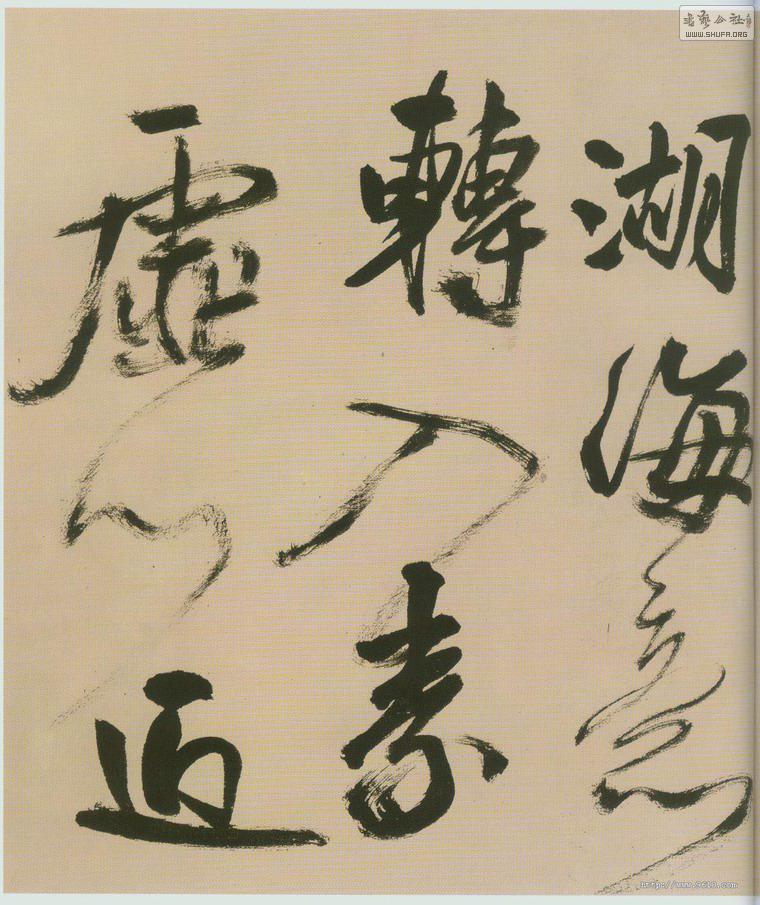 書藝公社
WWW.SHUFA.ORG
湖海意
轉入素
虛心近
http://www.9610.com